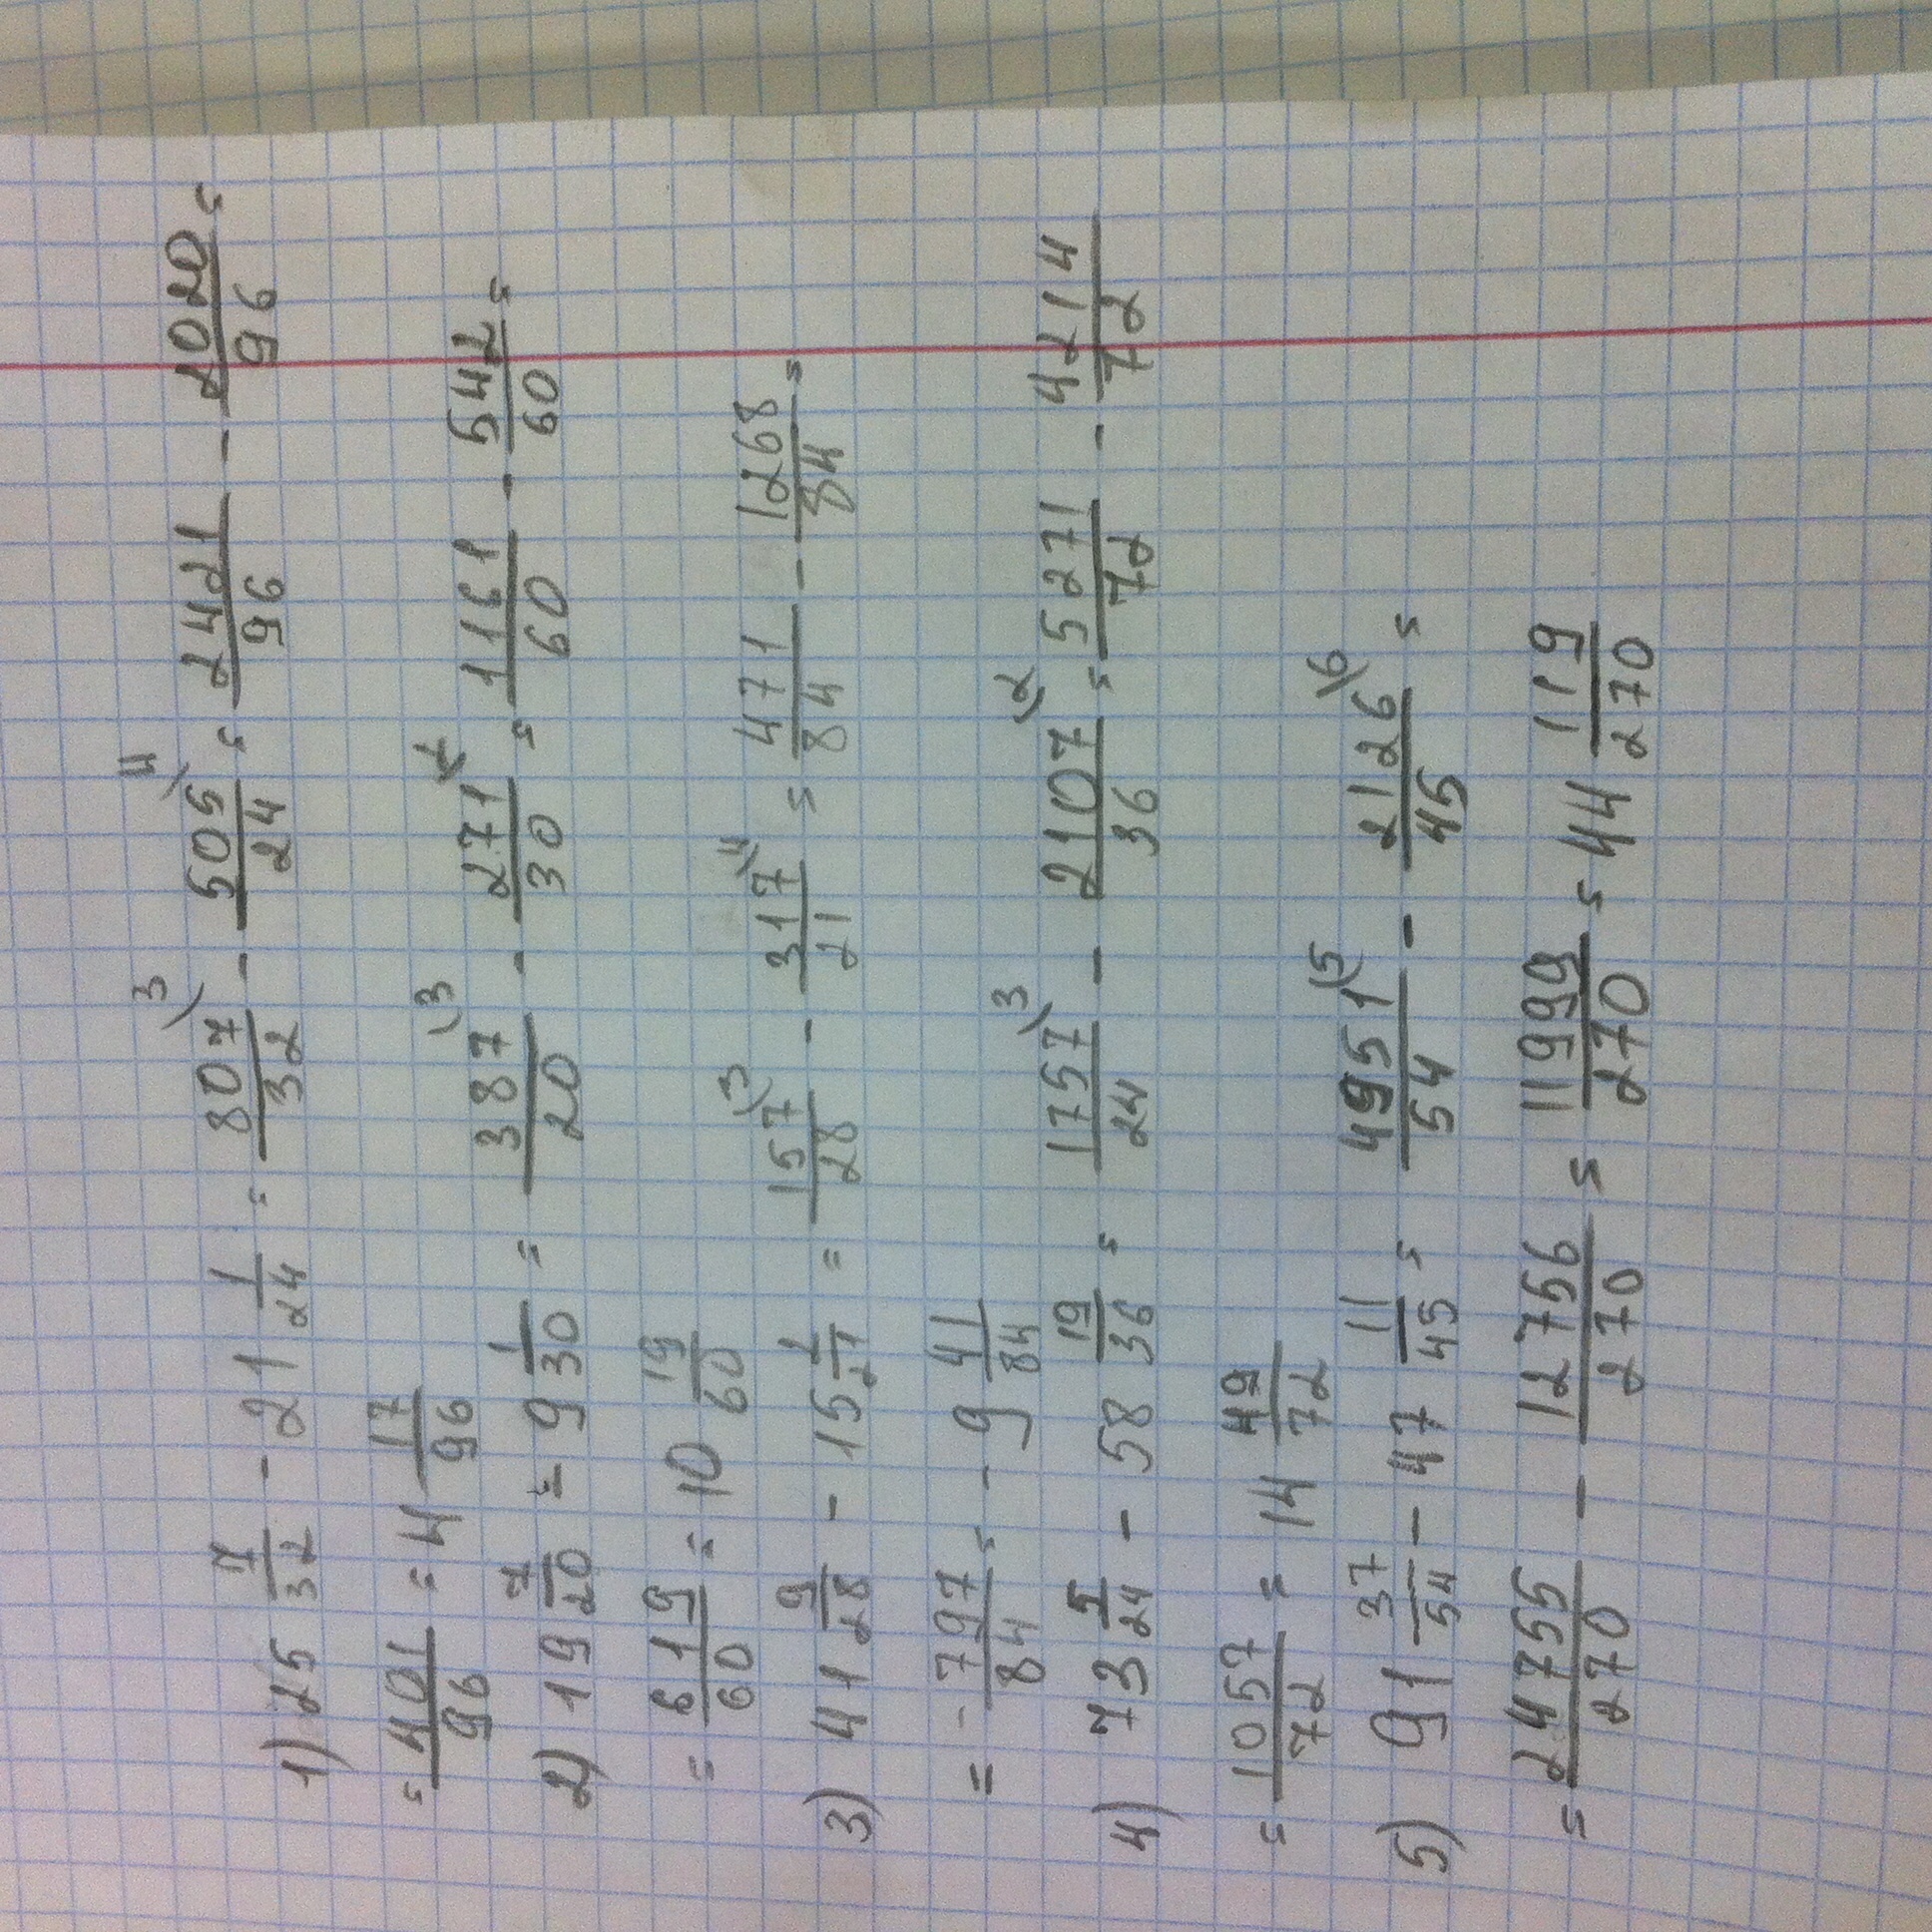 1) 25 7/32 - 21 1/24 = 807/32 ^(3 - 505/24 ^(4 = 2421/96 - 2020/96 =
= 401/96 = 4 17/96
2) 19 7/20 - 9 1/30 = 387/20 ^(3 - 271/30 ^(2 = 1161/60 - 542/60 =
= 619/60 = 10 19/60
3) 41 9/28 - 15 2/21 = 157/28 ^(3 - 317/21 ^(4 = 471/84 - 1268/84 =
= - 797/84 = - 9 41/84
4) 73 5/24 - 58 19/36 = 1757/24 ^(3 - 2107/36 ^(2 = 5271/72 - 4214/72
= 1057/72 = 14 49/72
5) 91 37/54 - 47 11/45 = 4951/54 ^(5 - 2126/45 ^(6 =
= 24755/270 - 12756/270 = 11999/270 = 44 119/270